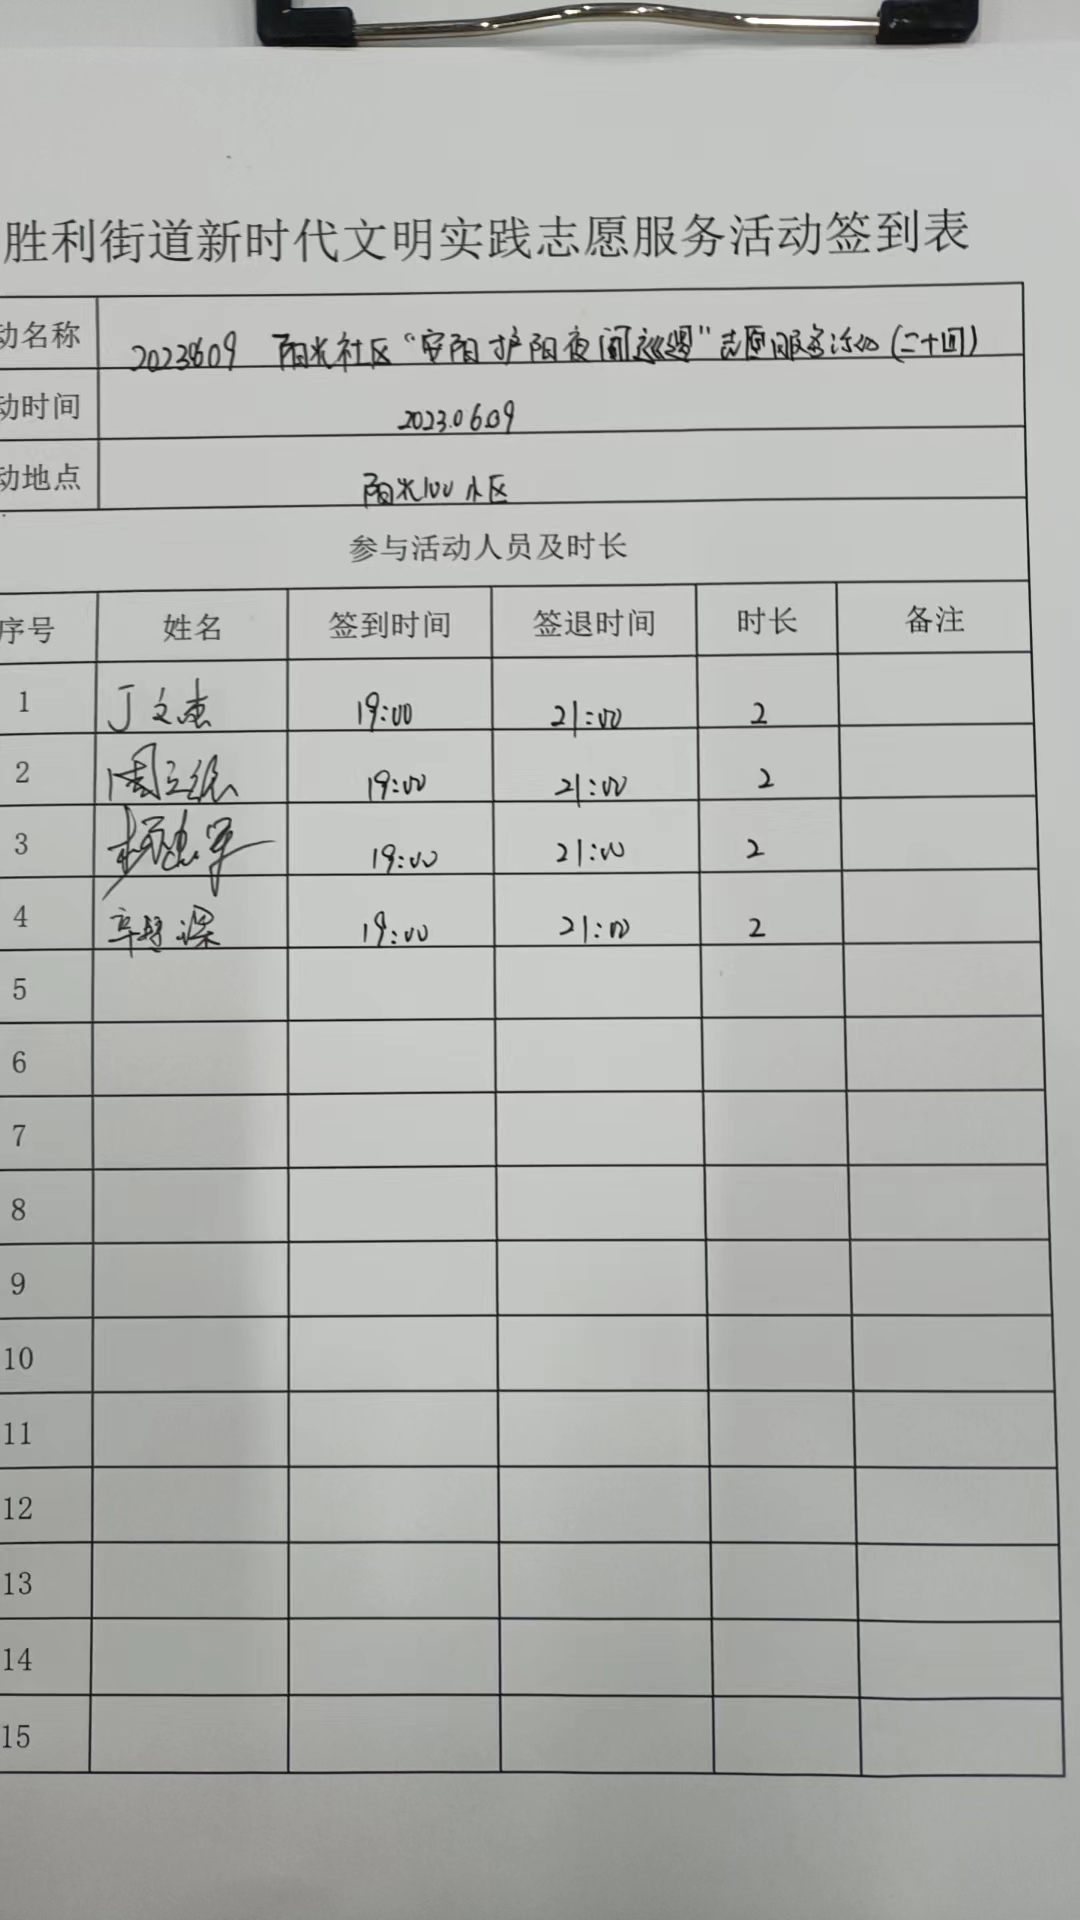 胜利街道新时代文明实践志愿服务活动签到表
动名称 20230609 阳光社区“安阳护阳夜间巡逻”志愿服务活动(二十四)
动时间 2023.06.09
动地点 阳光100小区
参与活动人员及时长
序号 姓名 签到时间 签退时间 时长 备注
1 丁文杰 19:00 21:00 2
2 周立 19:00 21:00 2
3 杨 军 19:00 21:00 2
4 辛 19:00 21:00 2
5
6
7
8
9
10
11
12
13
14
15